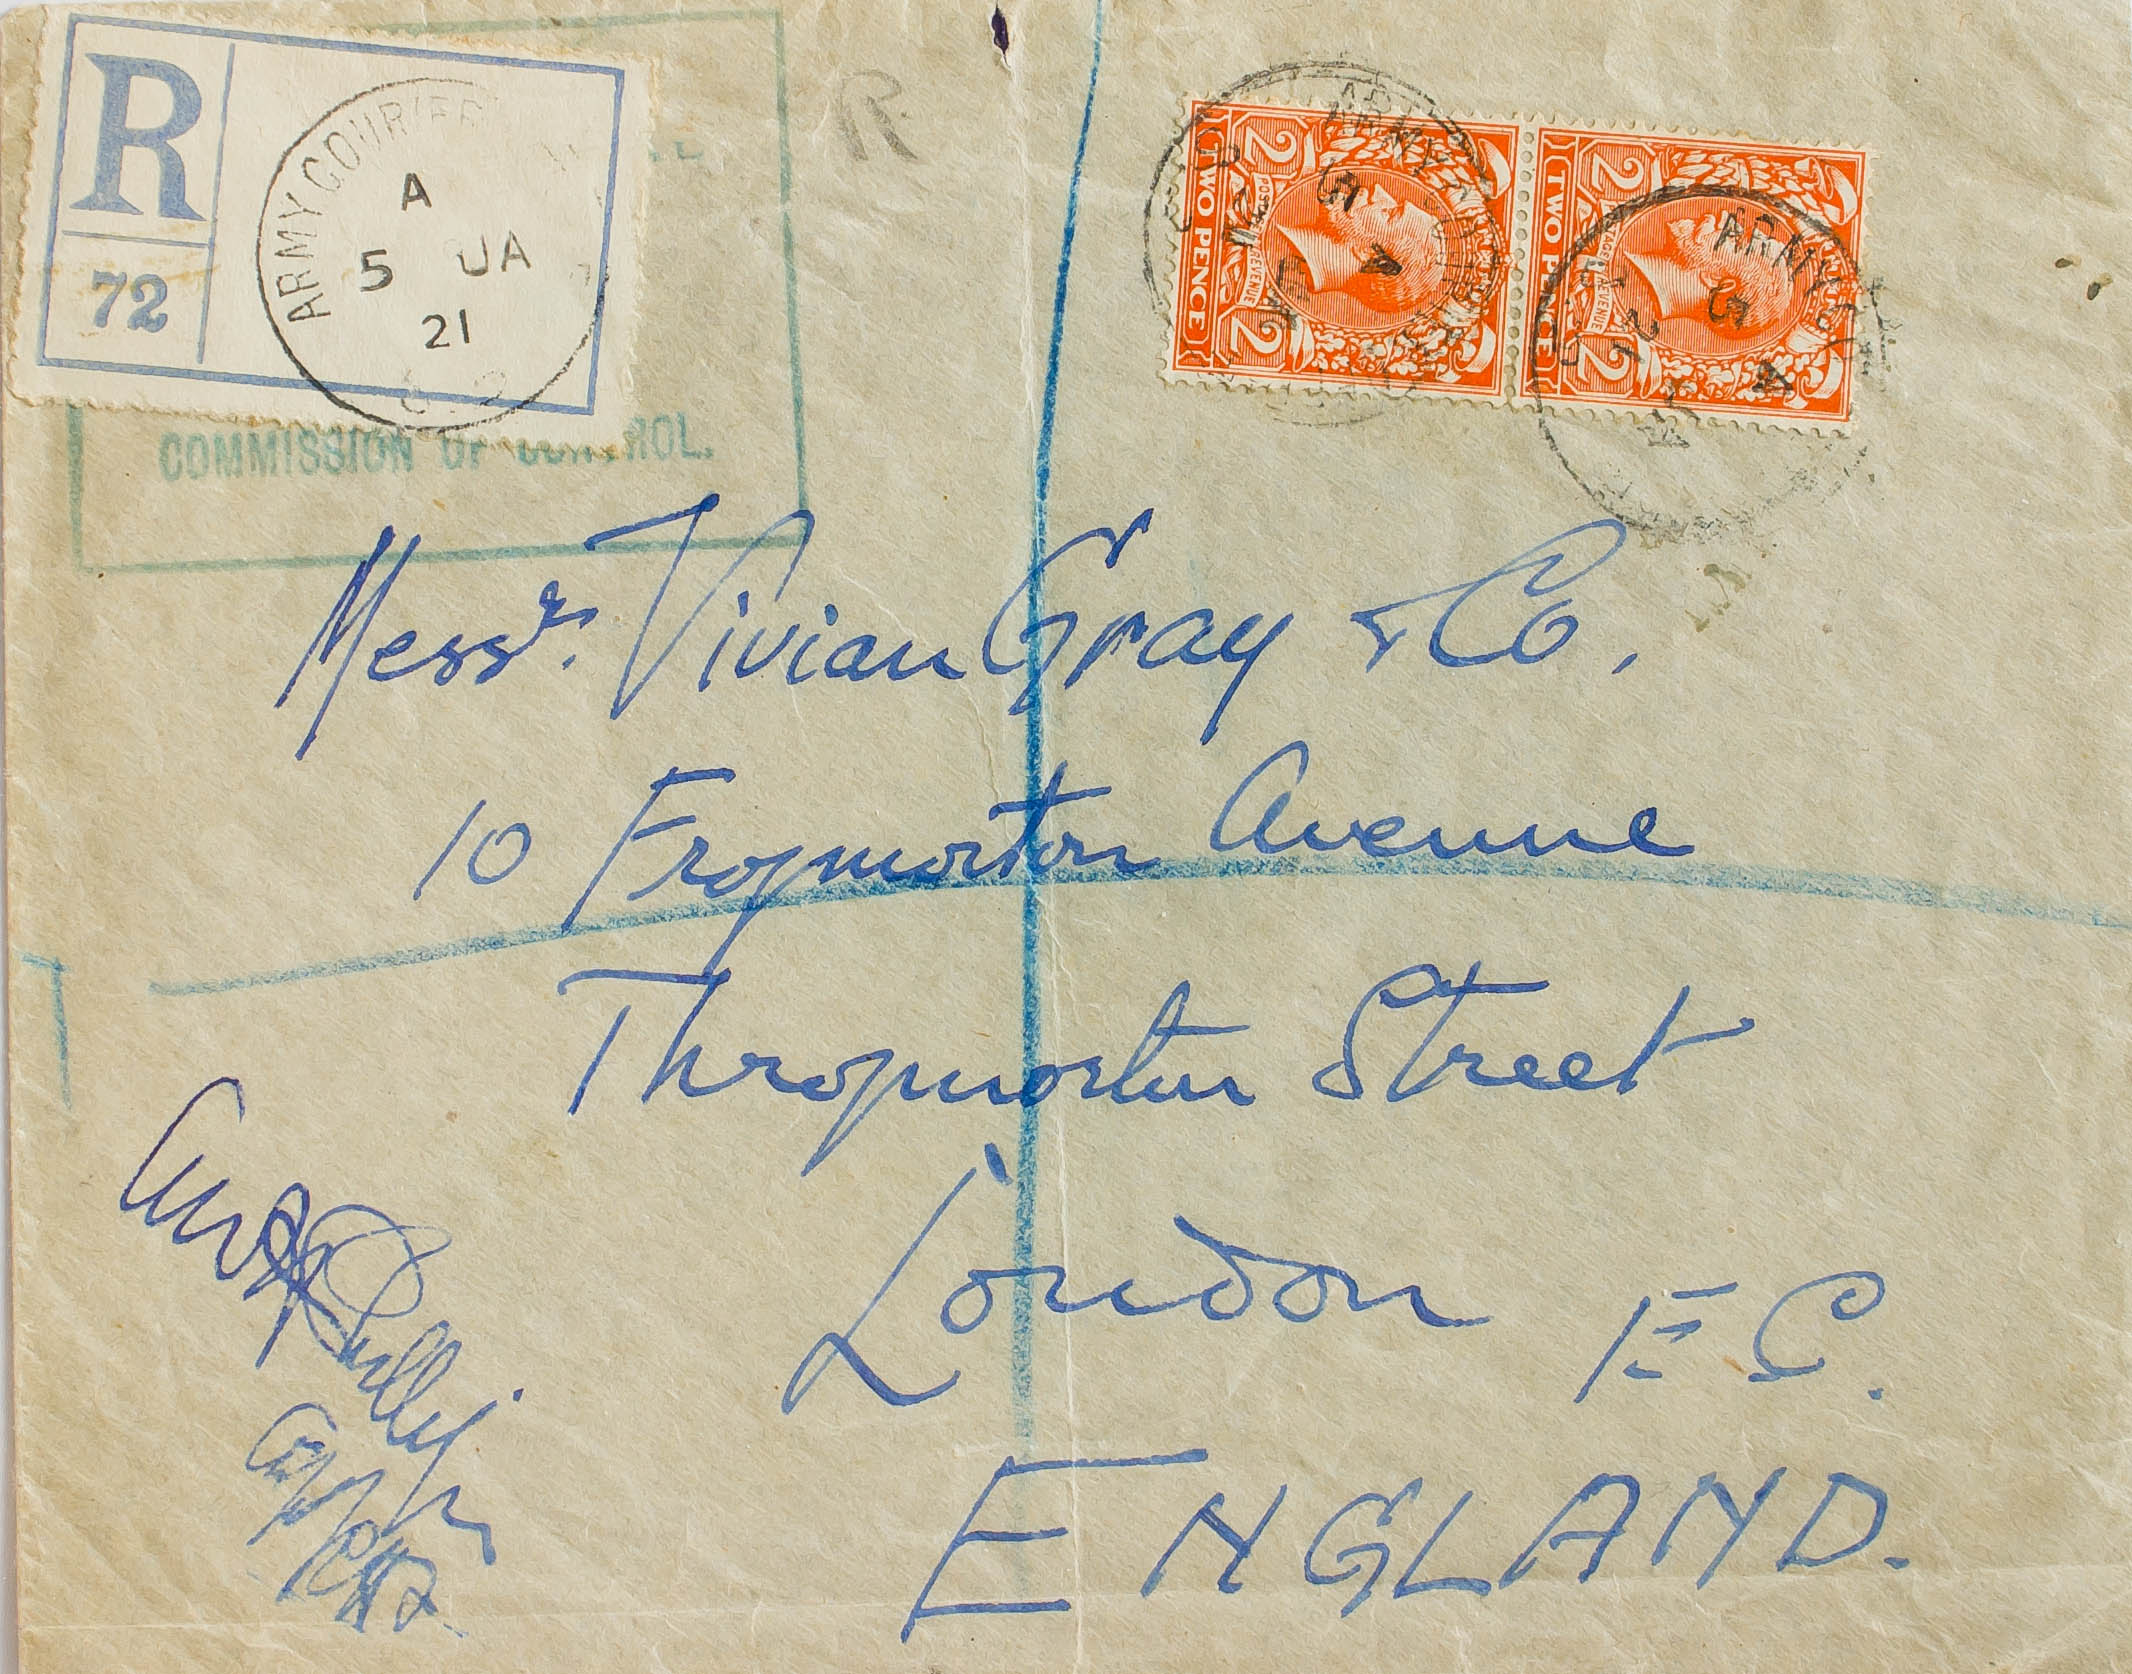 R
72
ARMY COURIER
A
5 JA
21
R
COMMISSION OF CONTROL.
TWO PENCE
2 2
POSTAGE REVENUE
TWO PENCE
2 2
POSTAGE REVENUE
ARMY COURIER
A
5
21
ARMY
A
5
21
Messrs. Vivian Gray & Co.
10 Frogmorton Avenue
Throgmorton Street
London E.C.
ENGLAND.